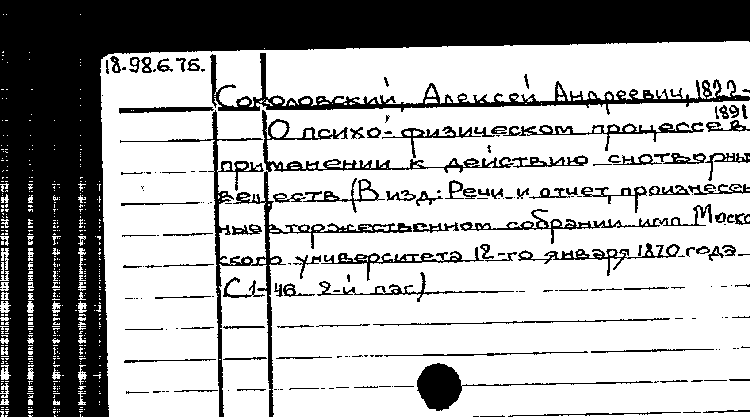 18.98.6.76.
Соколовский, Алексей Андреевич, 1822-
1891
О психо-физическом процессе в
применении к действию снотворны
веществ (В изд: Речи и отчет, произнесен
ные в торжественном собрании имп Моско
ского университета 12-го января 1870 года
С 1-46 2-й паг)